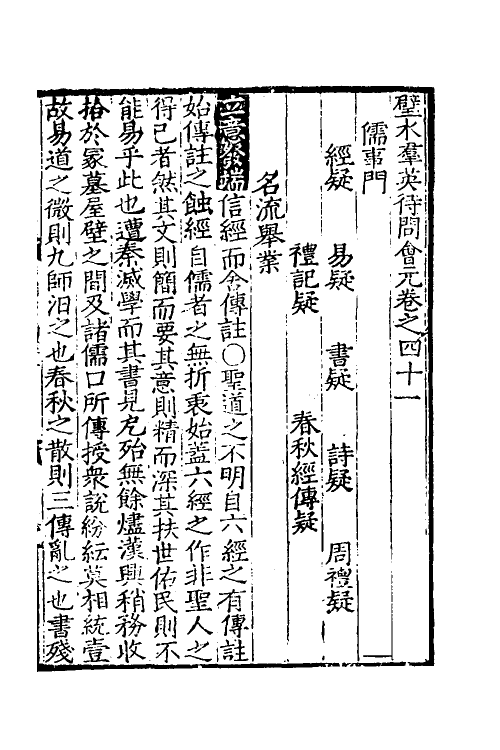 璧水羣英待問會元卷之四十一
儒事門
經疑 易疑 書疑 詩疑 周禮疑
禮記疑 春秋經傳疑
名流舉業
立意發端信經而舍傳註○聖道之不明自六經之有傳註
始傳註之蝕經自儒者之無折衷始蓋六經之作非聖人之
得已者然其文則簡而要其意則精而深其扶世佑民則不
能易乎此也遭秦滅學而其書見厄殆無餘燼漢興稍務收
拾於冡墓屋壁之間及諸儒口所傳授衆說紛紜莫相統壹
故易道之微則九師汨之也春秋之散則三傳亂之也書殘